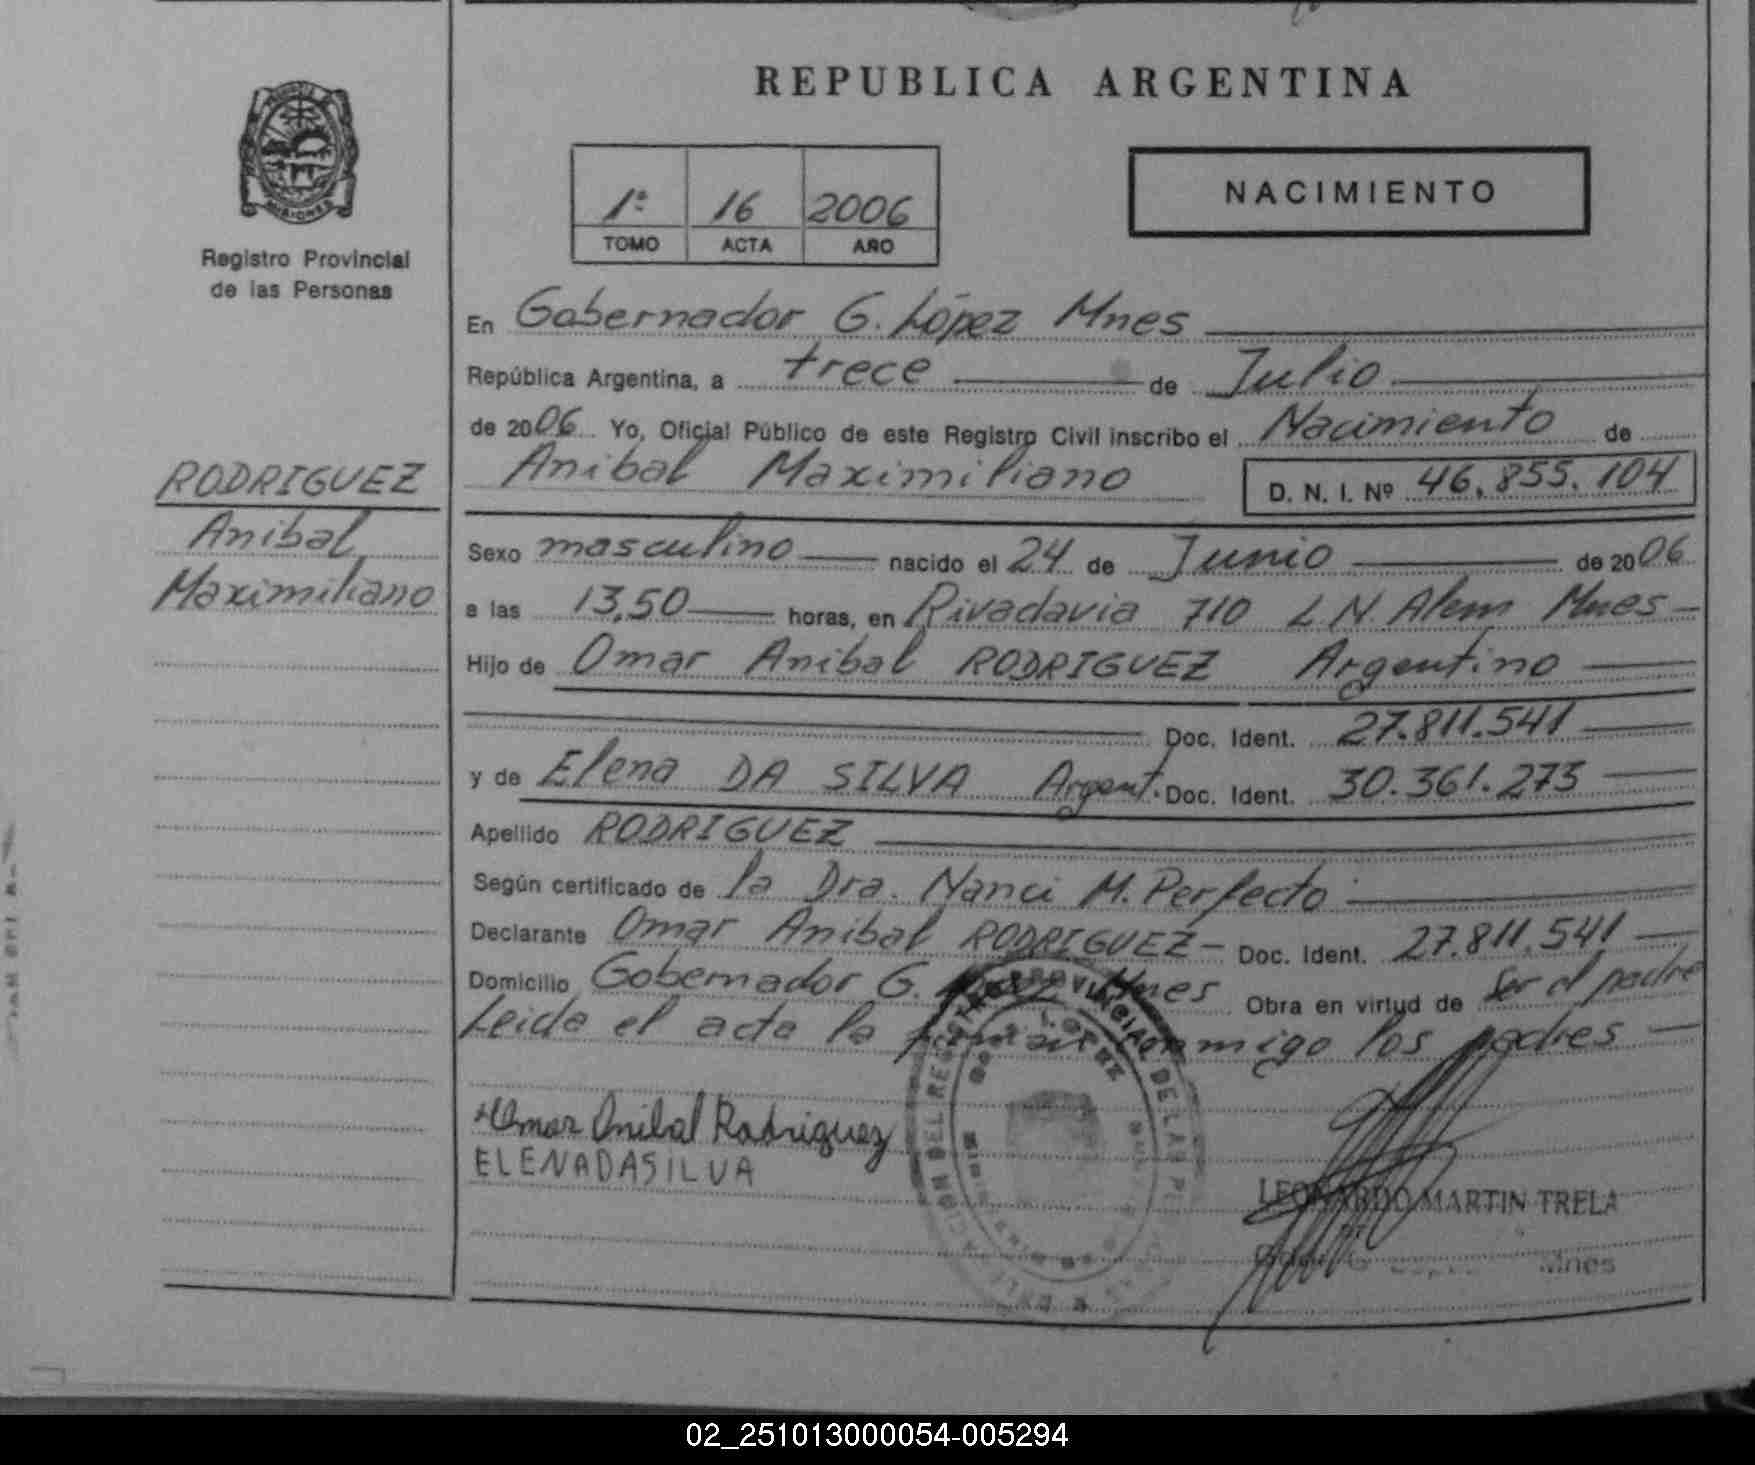 REPUBLICA ARGENTINA
MISIONES
Registro Provincial
de las Personas
1ª 16 2006
TOMO ACTA AÑO
NACIMIENTO
En Gobernador G. López Mnes
República Argentina, a trece de Julio
de 2006 Yo, Oficial Público de este Registro Civil inscribo el Nacimiento de
Anibal Maximiliano D. N. I. Nº 46.855.104
RODRIGUEZ
Anibal
Maximiliano
Sexo masculino nacido el 24 de Junio de 2006
a las 13,50 horas, en Rivadavia 710 L.N. Alem Mnes
Hijo de Omar Anibal RODRIGUEZ Argentino
Doc. Ident. 27.811.541
y de Elena DA SILVA Argent. Doc. Ident. 30.361.273
Apellido RODRIGUEZ
Según certificado de la Dra. Nanci M. Perfecto
Declarante Omar Anibal RODRIGUEZ Doc. Ident. 27.811.541
Domicilio Gobernador G. López Mnes Obra en virtud de Ser el padre
Leida el acta la firman conmigo los padres
Omar Anibal Rodriguez
ELENADASILVA
LEONARDO MARTIN TRELA
Mnes
02_251013000054-005294